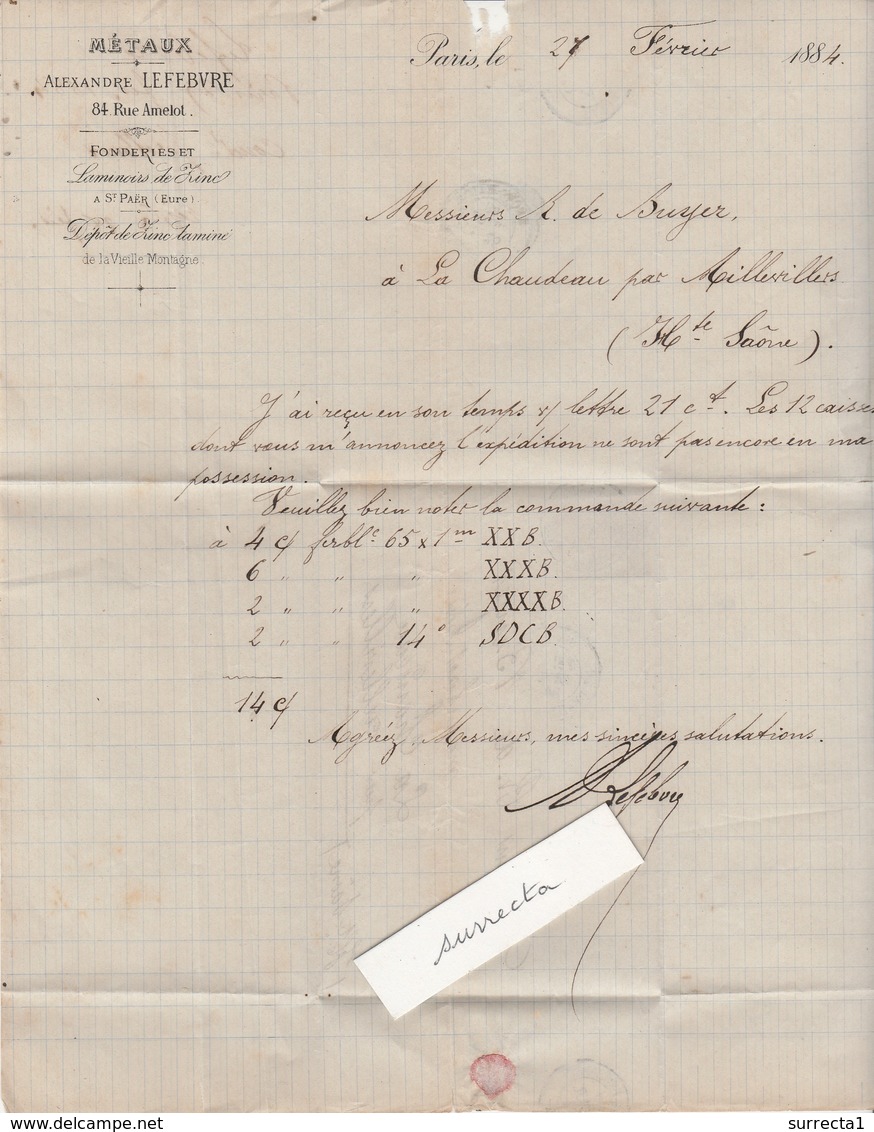 MÉTAUX
ALEXANDRE LEFEBVRE
84 Rue Amelot.
FONDERIES ET
Laminoirs de Zinc
A ST PAËR (Eure)
Dépôt de Zinc laminé
de la Vieille Montagne
Paris, le 27 Février 1884.
Messieurs R. de Buyer,
à La Chaudeau par Aillevillers
(Hte Saône).
J'ai reçu en son temps v/ lettre 21 ct. Les 12 caisses
dont vous m'annoncez l'expédition ne sont pas encore en ma
possession.
Veuillez bien noter la commande suivante :
à 4 c/ ferblc 65 x 1m XXB.
6 " " " XXXB.
2 " " " XXXXB.
2 " " 14° SDCB.
14 c/
Agréez, Messieurs, mes sincères salutations.
A Lefebvre
surrecta
delcampe.net
surrecta1